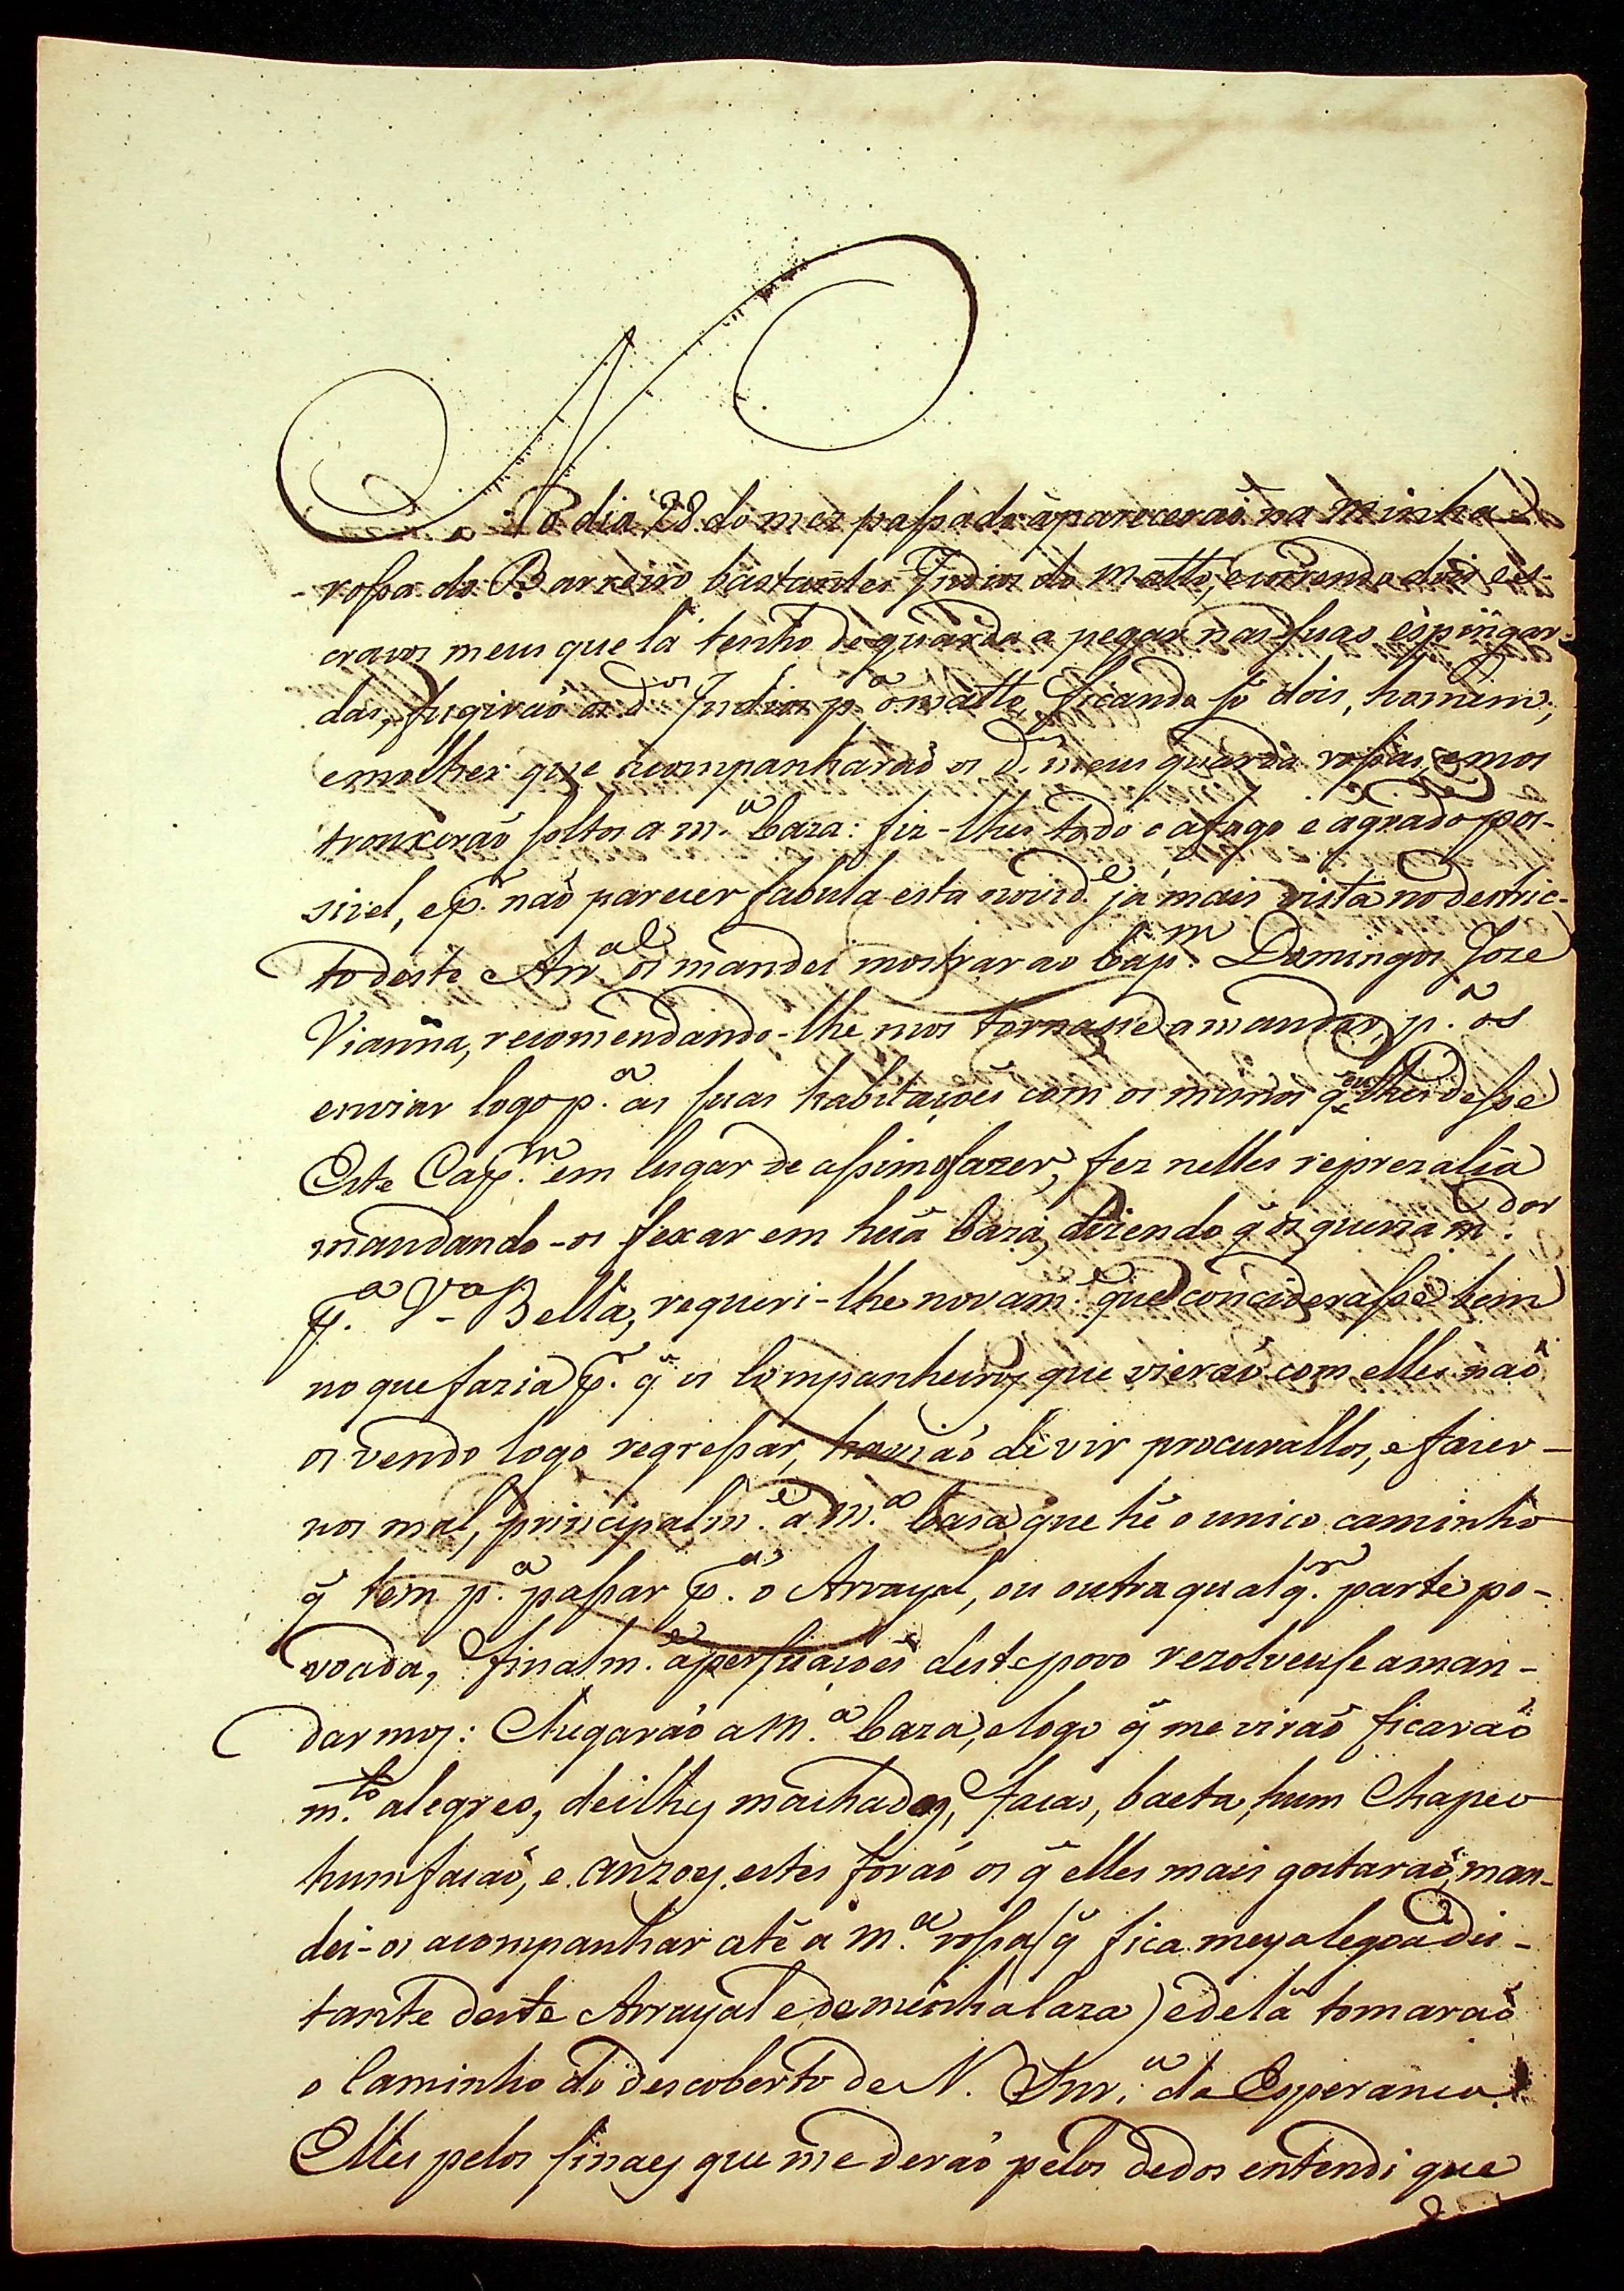 No dia 28. do mez passado apparecerão na minha
rossa do Barreiro bastantes Indios do Matto, e correndo dois es-
cravos meus que lá tenho de guarda a pegar nas suas espingar-
das, fugirão os d.os Indios p.a o matto, ficando só dois, homem,
e molher que acompanharão os d.os meus guarda rossas, e mos
trouxerão soltos a m.a Caza: fiz-lhes todo o afago e agrado pos-
sivel, e p.r não parecer fabula esta novid.e já mais vista no destric-
to deste Arr.al os mandei mostrar ao Cap.m Domingos Joze
Vianna, recomendando-lhe mos tornasse a mandar, p.a os
enviar logo p.a as suas habitaçoes com os mimos q̃ eu lhes desse
Este Cap.m em lugar de assim o fazer, fez nelles reprezalia
mandando-os fexar em huã Caza, dizendo q̃ os queria m.dar
p.a V.a Bella, requeri-lhe novam.e que conciderasse bem
no que fazia p.r q̃ os Companheiros que vierão com elles não
os vendo logo regressar, havião de vir procurallos, e fazer-
nos mal, principalm.e a m.a Caza que hé o unico caminho
q̃ tem p.a passar p.a o Arrayal, ou outra qualq̃.r parte po-
voada, finalm.e a persuaçoes deste povo rezolveuse a man-
darmos: Chegarão a m.a Caza, e logo q̃ me virão ficarão
m.to alegres, deilhes machados, facas, baeta, hum Chapeo
hum facão, e anzoes, estes forão os q̃ elles mais gostarão, man-
dei-os acompanhar até a m.a rossa (q̃ fica meya legoa dis-
tante deste Arrayal e de minha Caza) e de lá tomarão
o Caminho do descoberto de N. Snr.a da Esperança.
Elles pelos sinaes que me derão pelos dedos entendi que